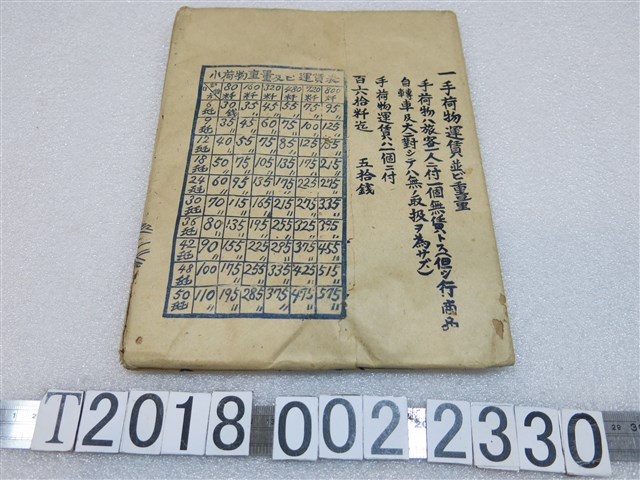 一手荷物運賃並ビ重量
手荷物ハ旅客一人ニ付一個無賃トス(但シ行商品
自轉車及犬ニ對シテハ無賃扱ヲ為サズ)
手荷物運賃ハ一個ニ付
百六拾粁迄 五拾銭
小荷物重量及ビ運賃表
80粁 160粁 320粁 480粁 720粁 800粁
6瓩 30銭 35〃 45〃 55〃 75〃 95〃
9瓩 35〃 45〃 60〃 75〃 100〃 125〃
12瓩 40〃 55〃 75〃 85〃 125〃 155〃
18瓩 50〃 75〃 105〃 135〃 175〃 215〃
24瓩 60〃 95〃 135〃 175〃 225〃 275〃
30瓩 70〃 115〃 165〃 215〃 275〃 335〃
36瓩 80〃 135〃 195〃 255〃 325〃 395〃
42瓩 90〃 155〃 225〃 295〃 375〃 455〃
48瓩 100〃 175〃 255〃 335〃 425〃 515〃
50瓩 110〃 195〃 285〃 375〃 475〃 575〃
T2018 002 2330